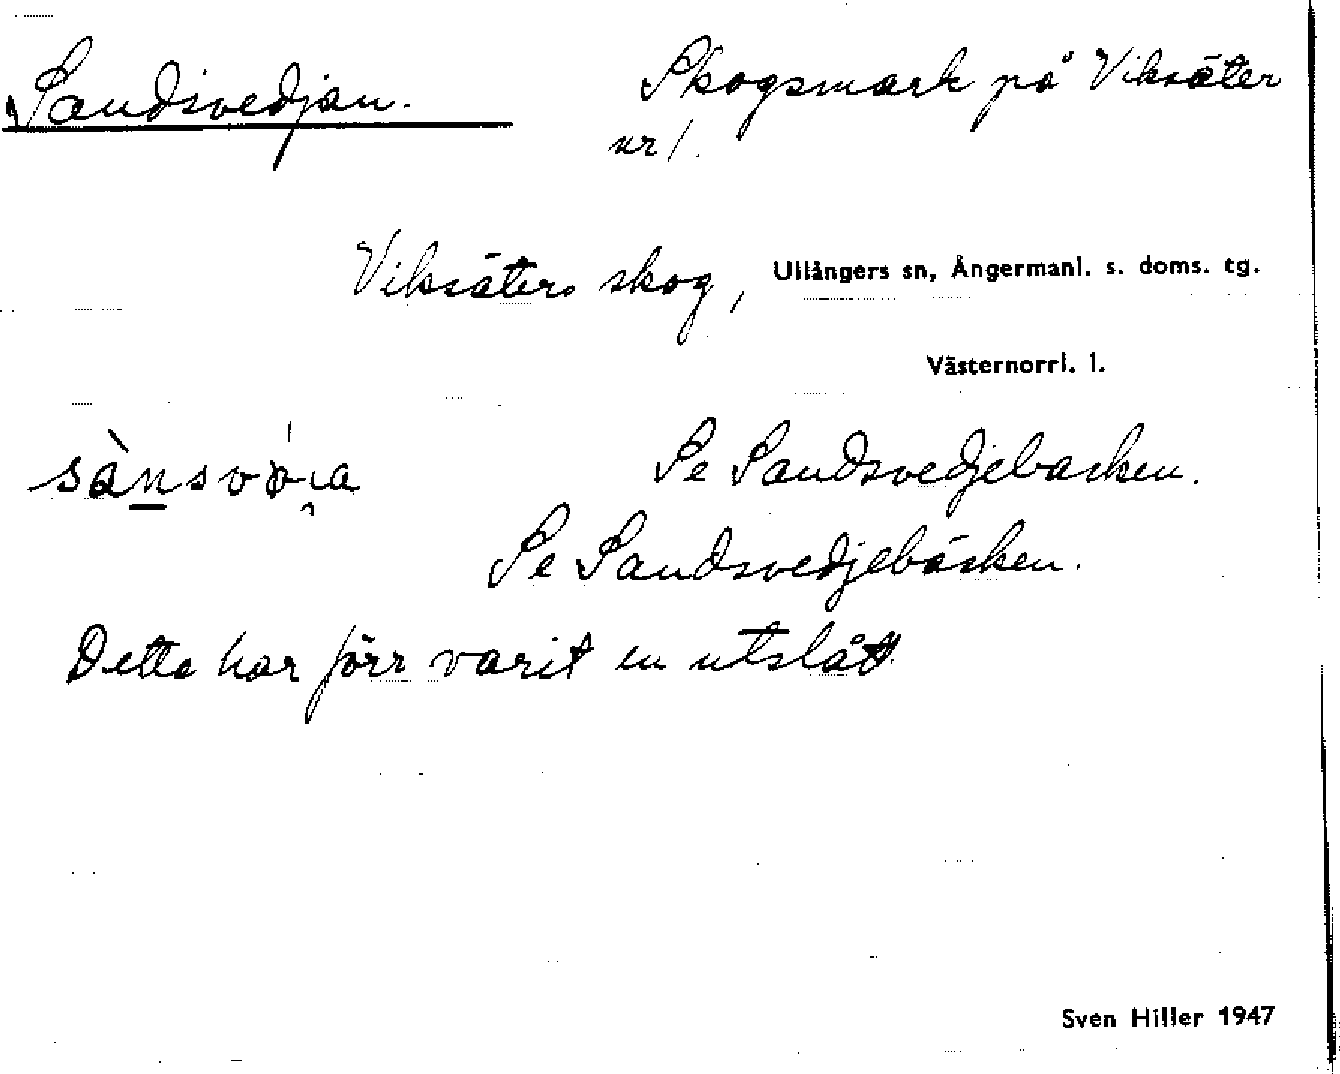 Sandsvedjan.
Skogsmark på Viksäter
nr 1.
Viksäters skog, Ullångers sn, Ångermanl. s. doms. tg.
Västernorrl. l.
Se Sandsvedjebacken.
Se Sandsvedjebäcken.
Detta har förr varit en utslått.
Sven Hiller 1947